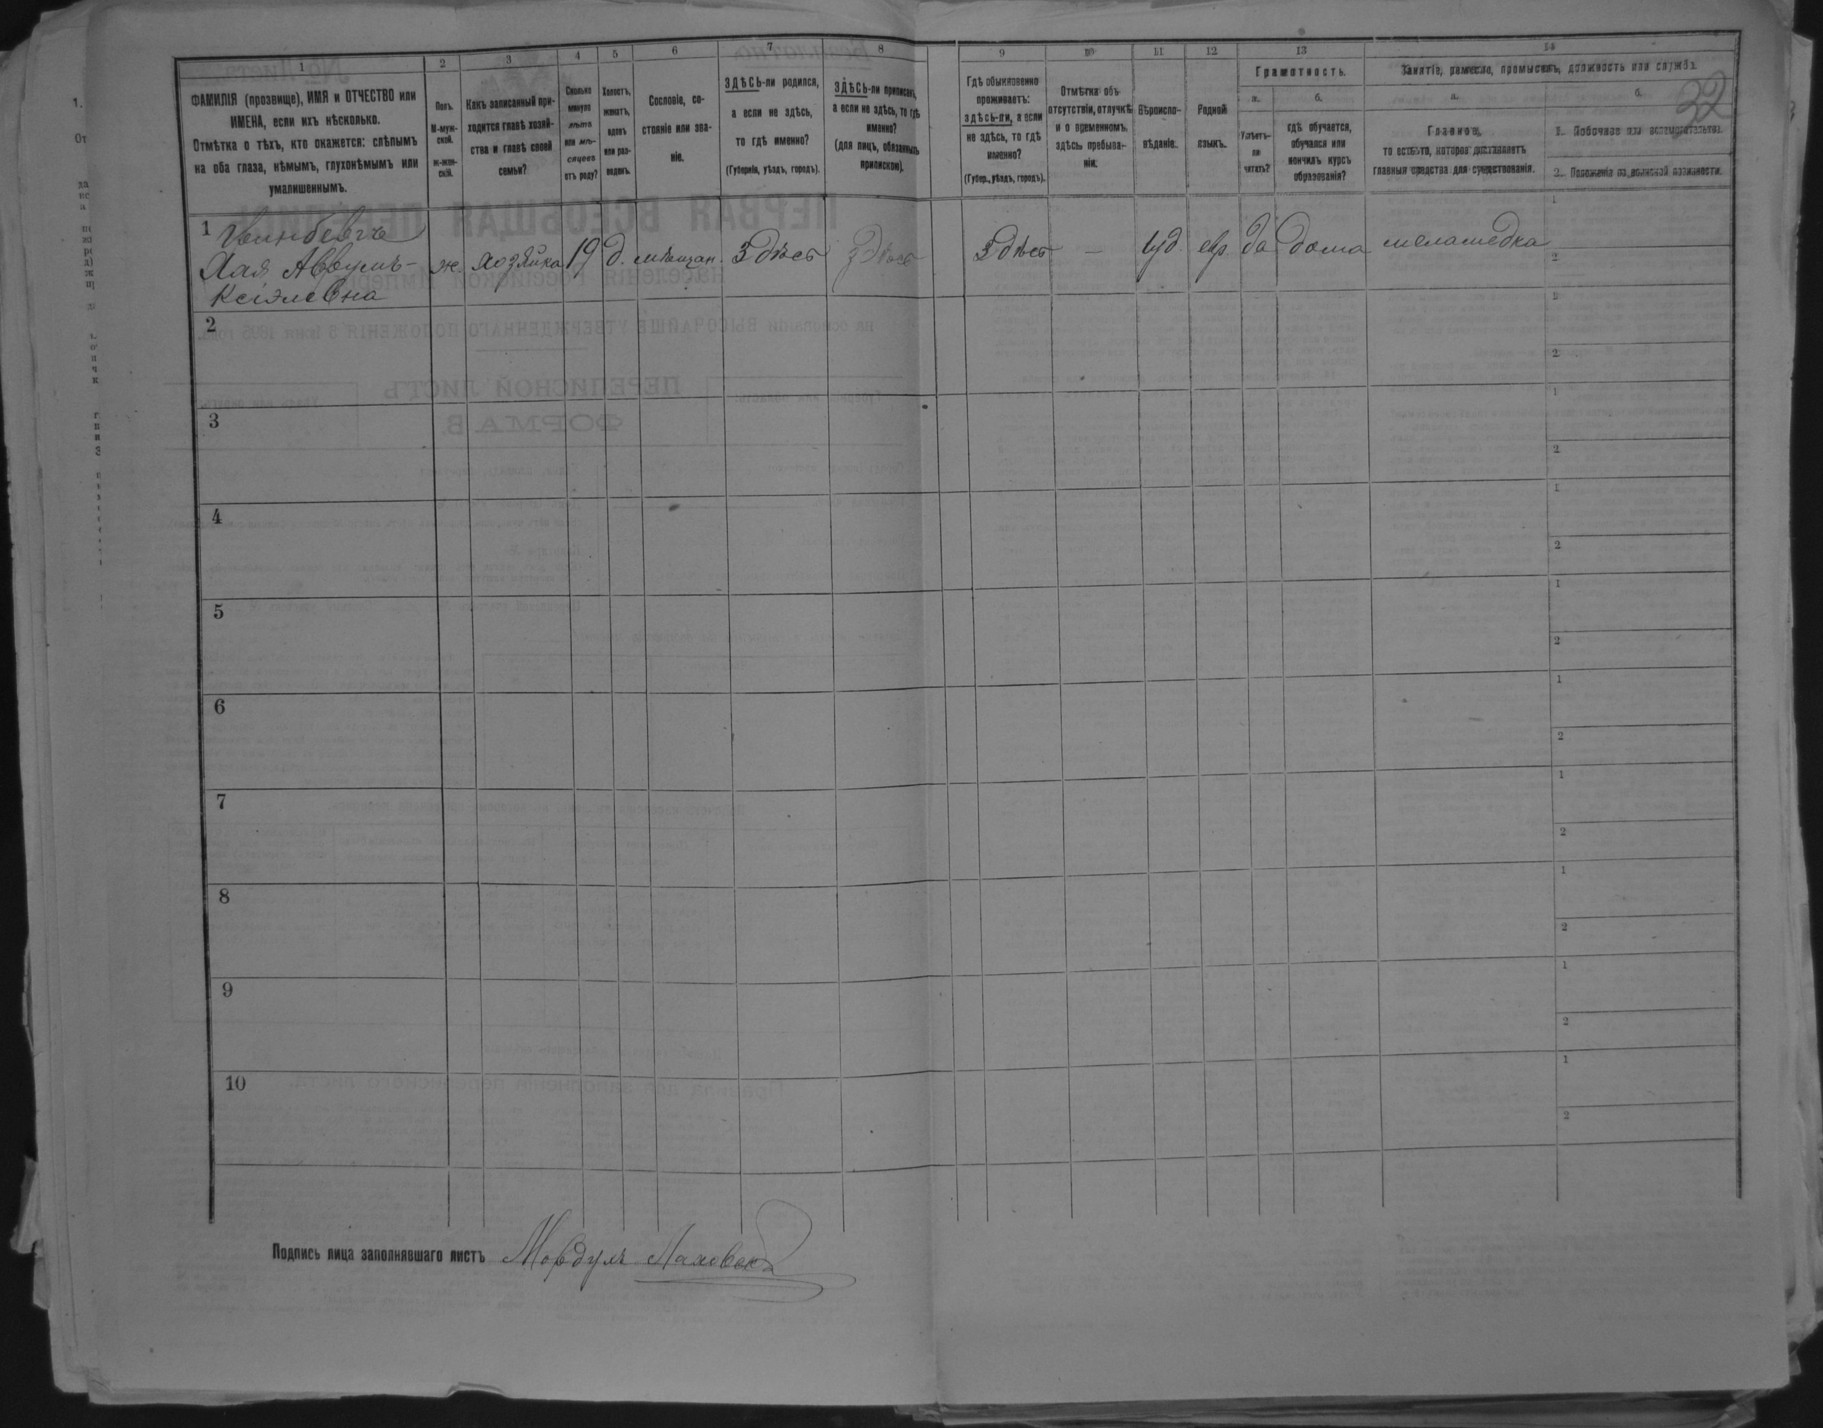 1
2
3
4
5
6
7
8
ФАМИЛІЯ (прозвище), ИМЯ и ОТЧЕСТВО или
ИМЕНА, если ихъ нѣсколько.
Отмѣтка о тѣхъ, кто окажется: слѣпымъ
на оба глаза, нѣмымъ, глухонѣмымъ или
умалишеннымъ.
Полъ.
М-муж-
ской.
ж-жен-
скій.
Какъ записанный при-
ходится главѣ хозяй-
ства и главѣ своей
семьи?
Сколько
минуло
лѣтъ
или мѣ-
сяцевъ
отъ роду?
Холостъ,
женатъ,
вдовъ
или раз-
веденъ.
Сословіе, со-
стояніе или зва-
ніе.
ЗДѢСЬ-ли родился,
а если не здѣсь,
то гдѣ именно?
(Губернія, уѣздъ, городъ).
ЗДѢСЬ-ли приписанъ,
а если не здѣсь, то гдѣ
именно?
(для лицъ, обязанныхъ
припиской).
9
10
11
12
13
14
Гдѣ обыкновенно
проживаетъ:
здѣсь-ли, а если
не здѣсь, то гдѣ
именно?
(Губер., уѣздъ, городъ).
Отмѣтка объ
отсутствіи, отлучкѣ
и о временномъ
здѣсь пребыва-
ніи.
Вѣроиспо-
вѣданіе.
Родной
языкъ.
Грамотность.
а.
б.
Умѣетъ-
ли
читать?
гдѣ обучается,
обучался или
кончилъ курсъ
образованія?
Занятіе, ремесло, промыселъ, должность или служба.
а.
б.
Главное,
то есть то, которое доставляетъ
главныя средства для существованія.
1. Побочное или вспомогательное.
2. Положеніе по воинской повинности.
32
1
Хая Авруmъ-
Ксіэлевна
ж. хозяйка 19 д. мѣщан. Здѣсь Здѣсь Здѣсь — іуд. евр. да дома
1
2
2
2
3
1
2
4
1
2
5
1
2
6
1
2
7
1
2
8
1
2
9
1
2
10
1
2
Подпись лица заполнявшаго листъ Мордухъ